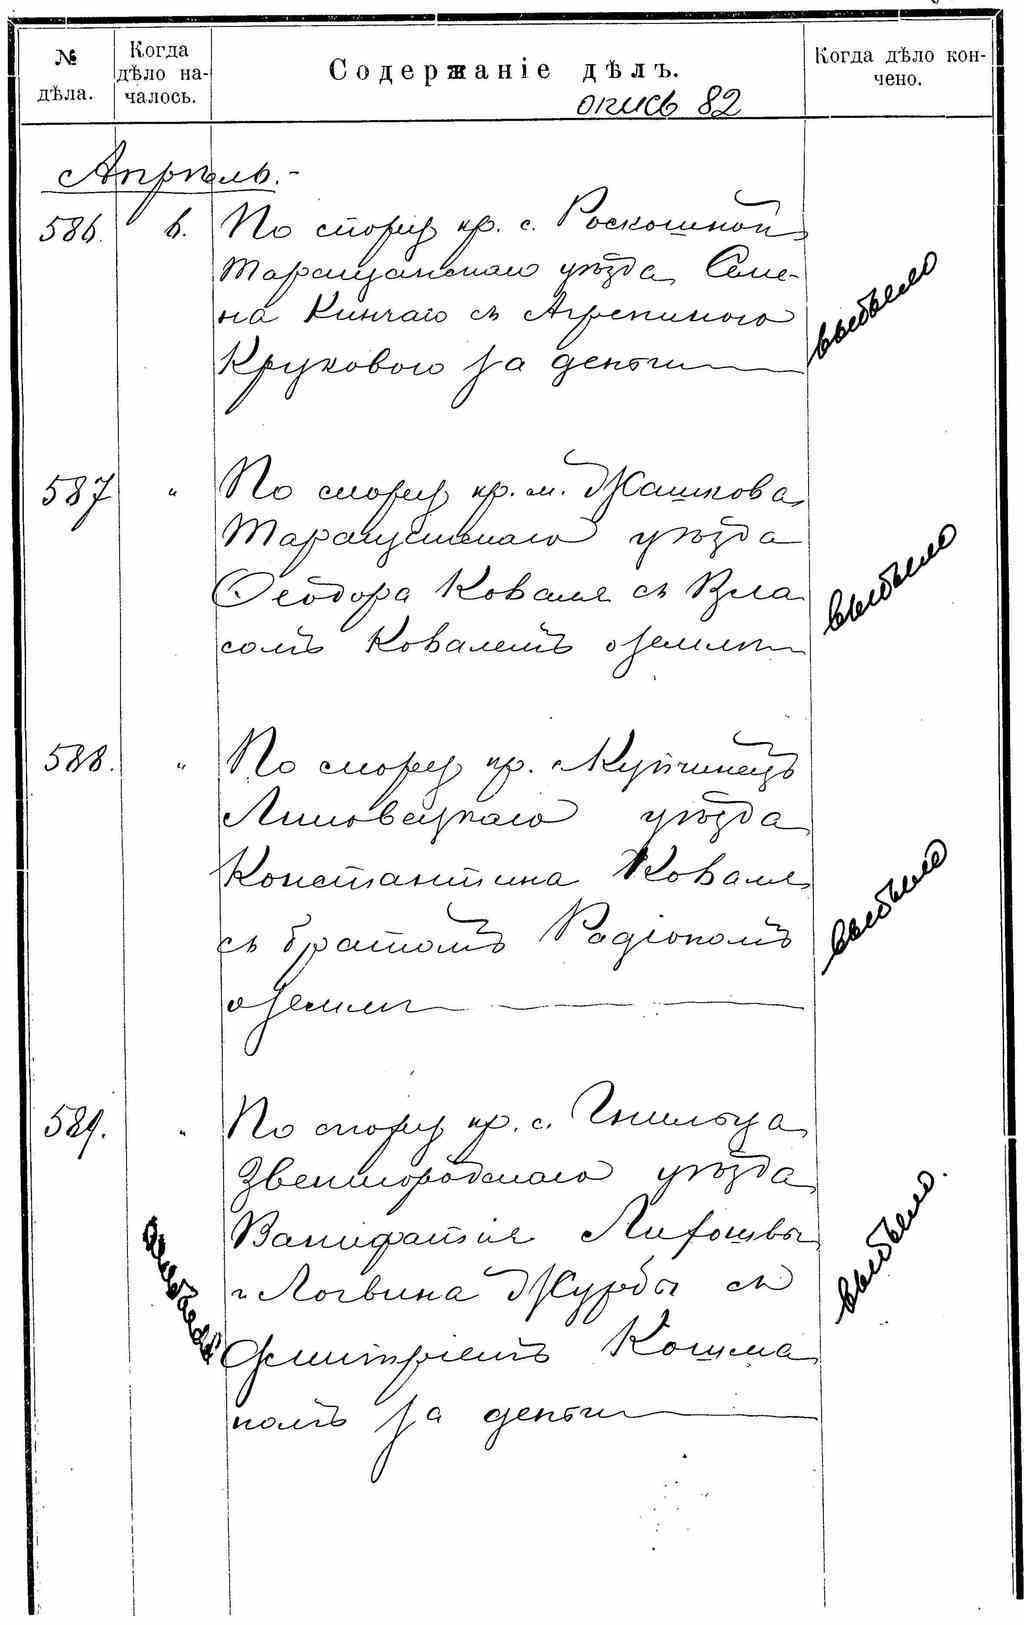 № дѣла.
Когда дѣло на-чалось.
Содержаніе дѣлъ.
Когда дѣло кон-чено.
опись 82
Апрѣль.-
586. 6. По спору кр. с. Роскошной
Таращанскаго уѣзда Семе-
на Кинчаго съ Агрепиною
Круковою за деньги
выбыло
587 " По спору кр. м. Жашкова
Таращанскаго уѣзда
Ѳеодора Коваля съ Вла
сомъ Ковалемъ о землѣ
выбыло
588. " По спору кр. Купчинецъ
Липовецкаго уѣзда
Константина Коваля
съ братомъ Радіономъ
о землѣ
выбыло
589. " По спору кр. с. Гнильца
Звенигородскаго уѣзда
Ванифатія
и Логвина Журбы съ
Дмитріемъ Кошма
номъ за деньги
выбыло.